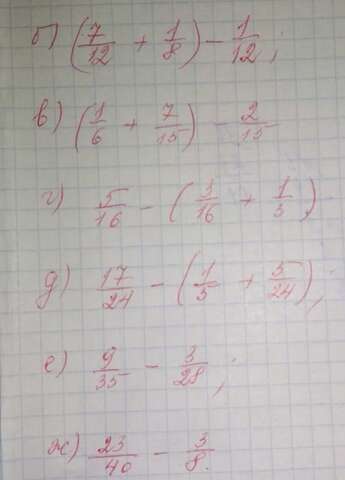 б) (7/12 + 1/8) - 1/12;
в) (1/6 + 7/15) - 2/15
г) 5/16 - (1/16 + 1/5)
д) 17/24 - (1/5 + 5/24);
е) 9/35 - 3/28;
ж) 23/40 - 3/8.